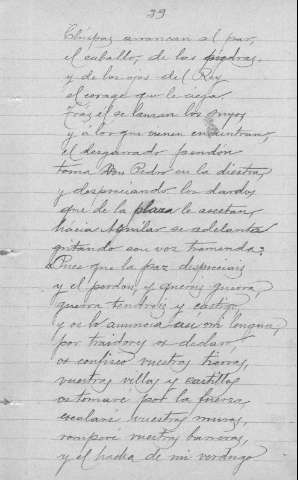 39
Chispas arrancan al par,
el caballo, de las piedras,
y de los ojos del Rey
el corage que le ciega.
Tras él se lanzan los suyos
y a los que vienen encuentran,
el desgarrado pendon
toma Don Pedro en la diestra,
y despreciando los dardos
que de la plaza le asestan,
hacia Aguilar se adelanta
gritando con voz tremenda:
Pues que la paz despreciais
y el perdon, y quereis guerra,
guerra tendreis y castigo,
y os lo anuncia mi lengua,
por traidores os declaro,
os confisco vuestras tierras,
vuestras villas y castillos
os tomaré por la fuerza
escalaré vuestros muros,
romperé vuestras barreras,
y el hacha de mi verdugo